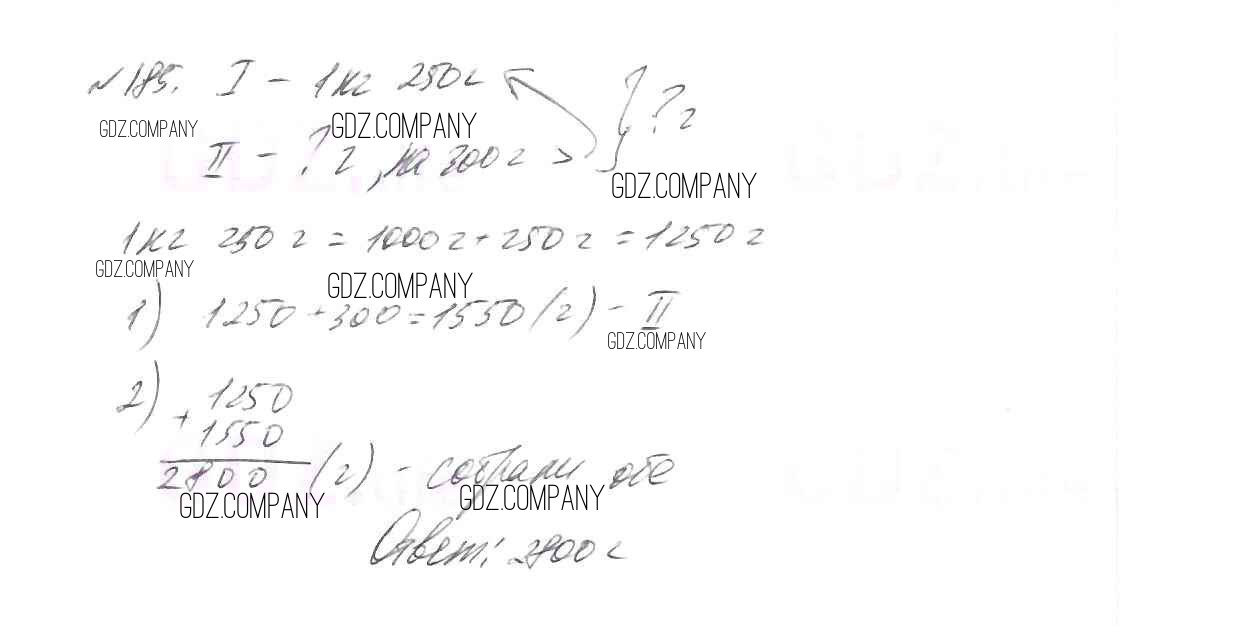 №185. I – 1 кг 250 г } ? г
GDZ.COMPANY GDZ.COMPANY
II – ? г, на 300 г >
GDZ.COMPANY
1 кг 250 г = 1000 г + 250 г = 1250 г
GDZ.COMPANY GDZ.COMPANY
1) 1250 + 300 = 1550 (г) – II
GDZ.COMPANY
2) + 1250
1550
2800 (г) – собрали обе
GDZ.COMPANY GDZ.COMPANY
Ответ: 2800 г